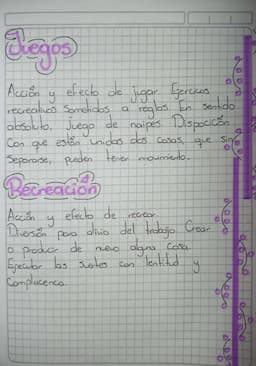 Juegos
Acción y efecto de jugar. Ejercicios
recreativos sometidos a reglas. En sentido
absoluto, juego de naipes. Disposición
con que están unidas dos cosas, que sin
separarse, pueden tener movimiento.
Recreación
Acción y efecto de recrear.
Diversión para alivio del trabajo. Crear
o producir de nuevo alguna cosa.
Ejecutar las suertes con lentitud y
complacencia.